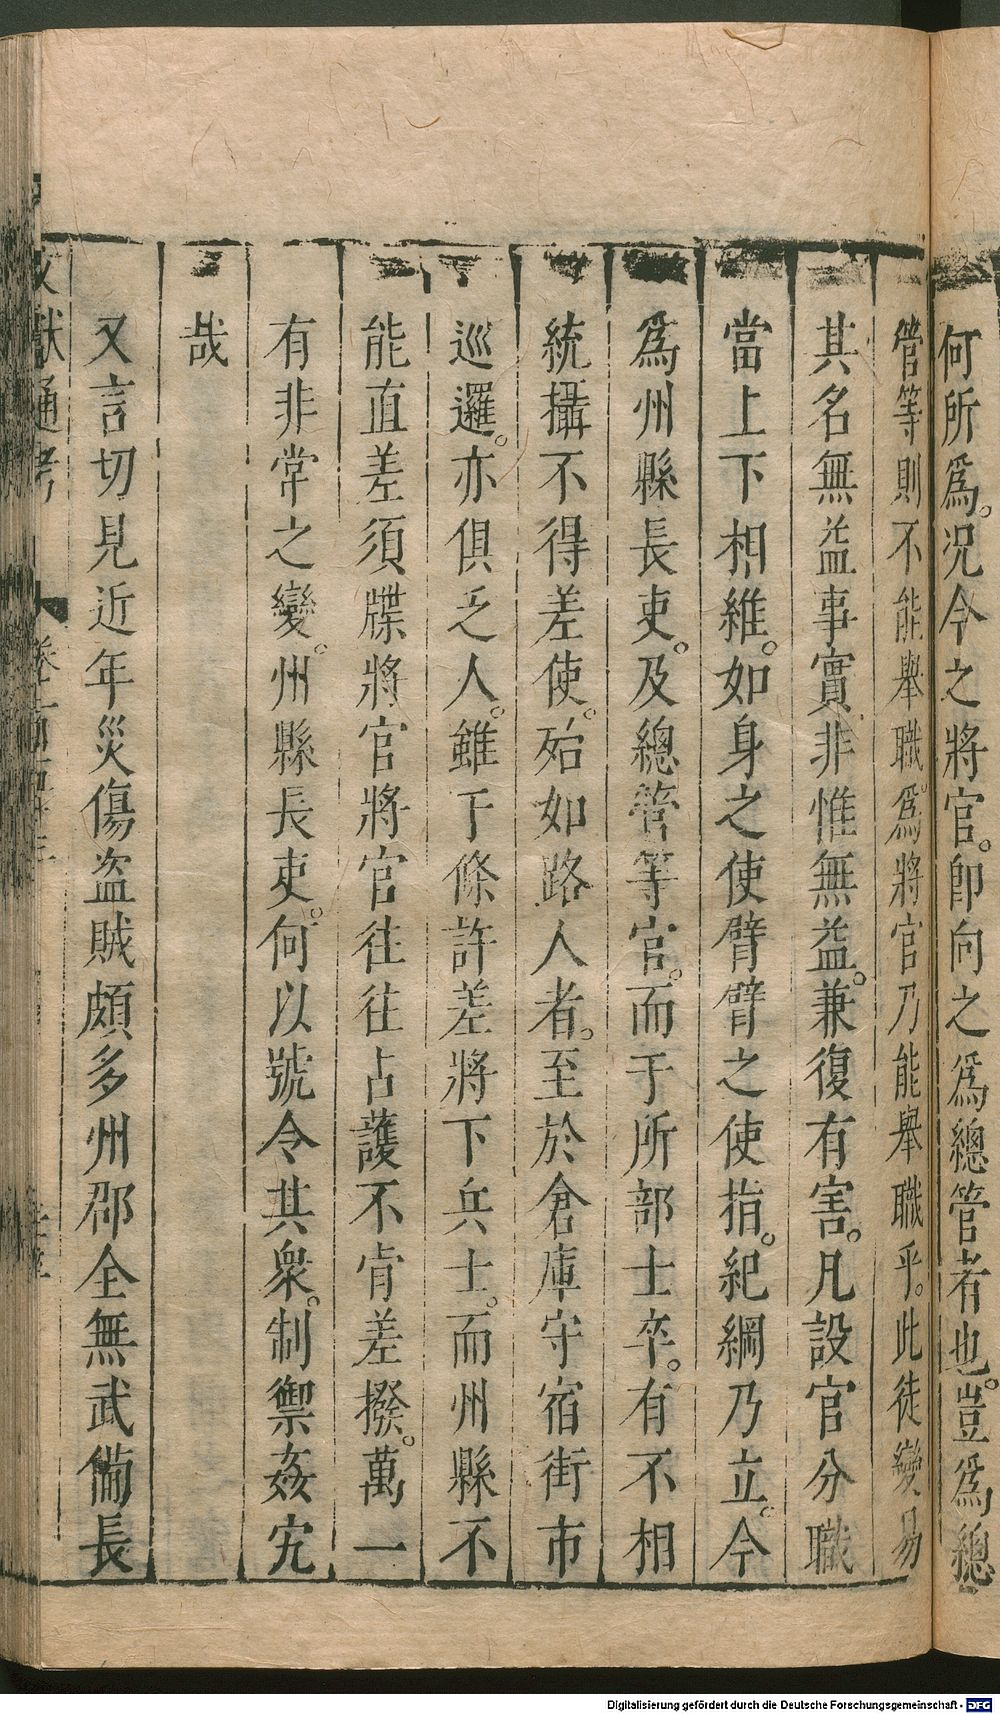 何所爲。况今之將官。卽向之爲總管者也。豈爲總
管等則不能舉職。爲將官乃能舉職乎。此徒變易
其名無益事實。非惟無益。兼復有害。凡設官分職
當上下相維。如身之使臂臂之使指。紀綱乃立。今
爲州縣長吏。及總管等官。而于所部士卒。有不相
統攝不得差使。殆如路人者。至於倉庫守宿街市
巡邏。亦俱乏人。雖于條許差將下兵士。而州縣不
能直差須牒將官將官往往占護不肯差撥。萬一
有非常之變。州縣長吏。何以號令其衆。制禦姦宄
哉
又言切見近年災傷盜賊頗多州郡全無武備長
文獻通考 卷一百五十三
Digitalisierung gefördert durch die Deutsche Forschungsgemeinschaft - DFG